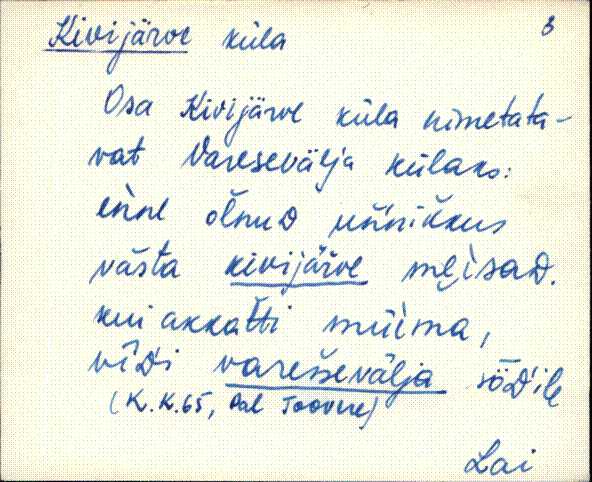 Kivijärve küla 3
Osa Kivijärve küla nimetata-
vat Varesevälja külaks:
enne olnud
västa kivijäŕve mẹisaD.
kui akkaťti müìma,
vīďi varešševäĺja söD'ile
(K.K.65, Pal Toovere)
Lai